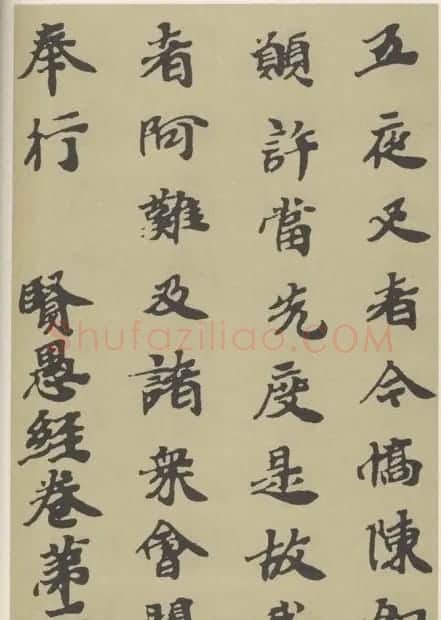 五夜叉者今憍陳
願許當先度是故
者阿難及諸衆會
奉行 賢愚經卷第
Shufaziliao.COM